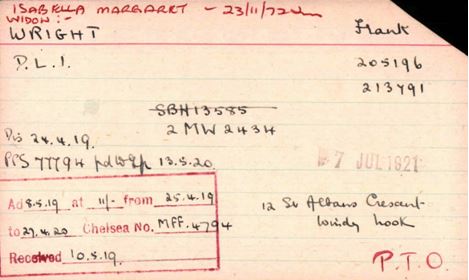 ISABELLA MARGARET - 23/11/72
WIDOW:-
WRIGHT Frank
D.L.I. 205196
213791
SBH13585
2 MW 2434
Dis 24.4.19.
PPS 77794 13.5.20.
7 JUL 1921
Ad 8.5.19 at 11/- from 25.4.19
to 27.4.20 Chelsea No. MFF.4794
Received 10.5.19.
12 St Albans Crescent
Windy Nook
P.T.O.